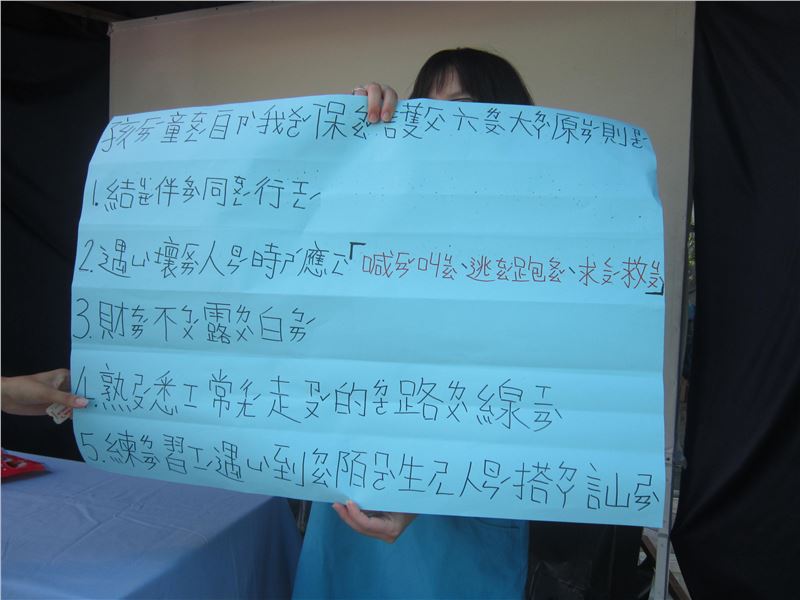 孩童自我保護六大原則
1.結伴同行
2.遇壞人時應「喊叫、逃跑、求救」
3.財不露白
4.熟悉常走的路線
5.練習遇到陌生人搭訕